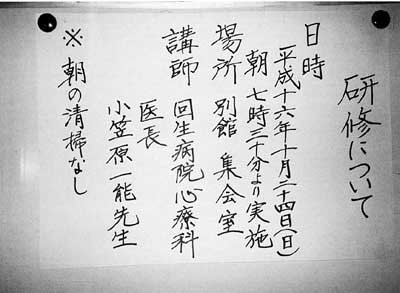 研修について
日時
平成十六年十月二十四日(日)
朝七時三十分より実施
場所 別館 集会室
講師 回生病院心療科
医長
小笠原一能先生
※朝の清掃なし